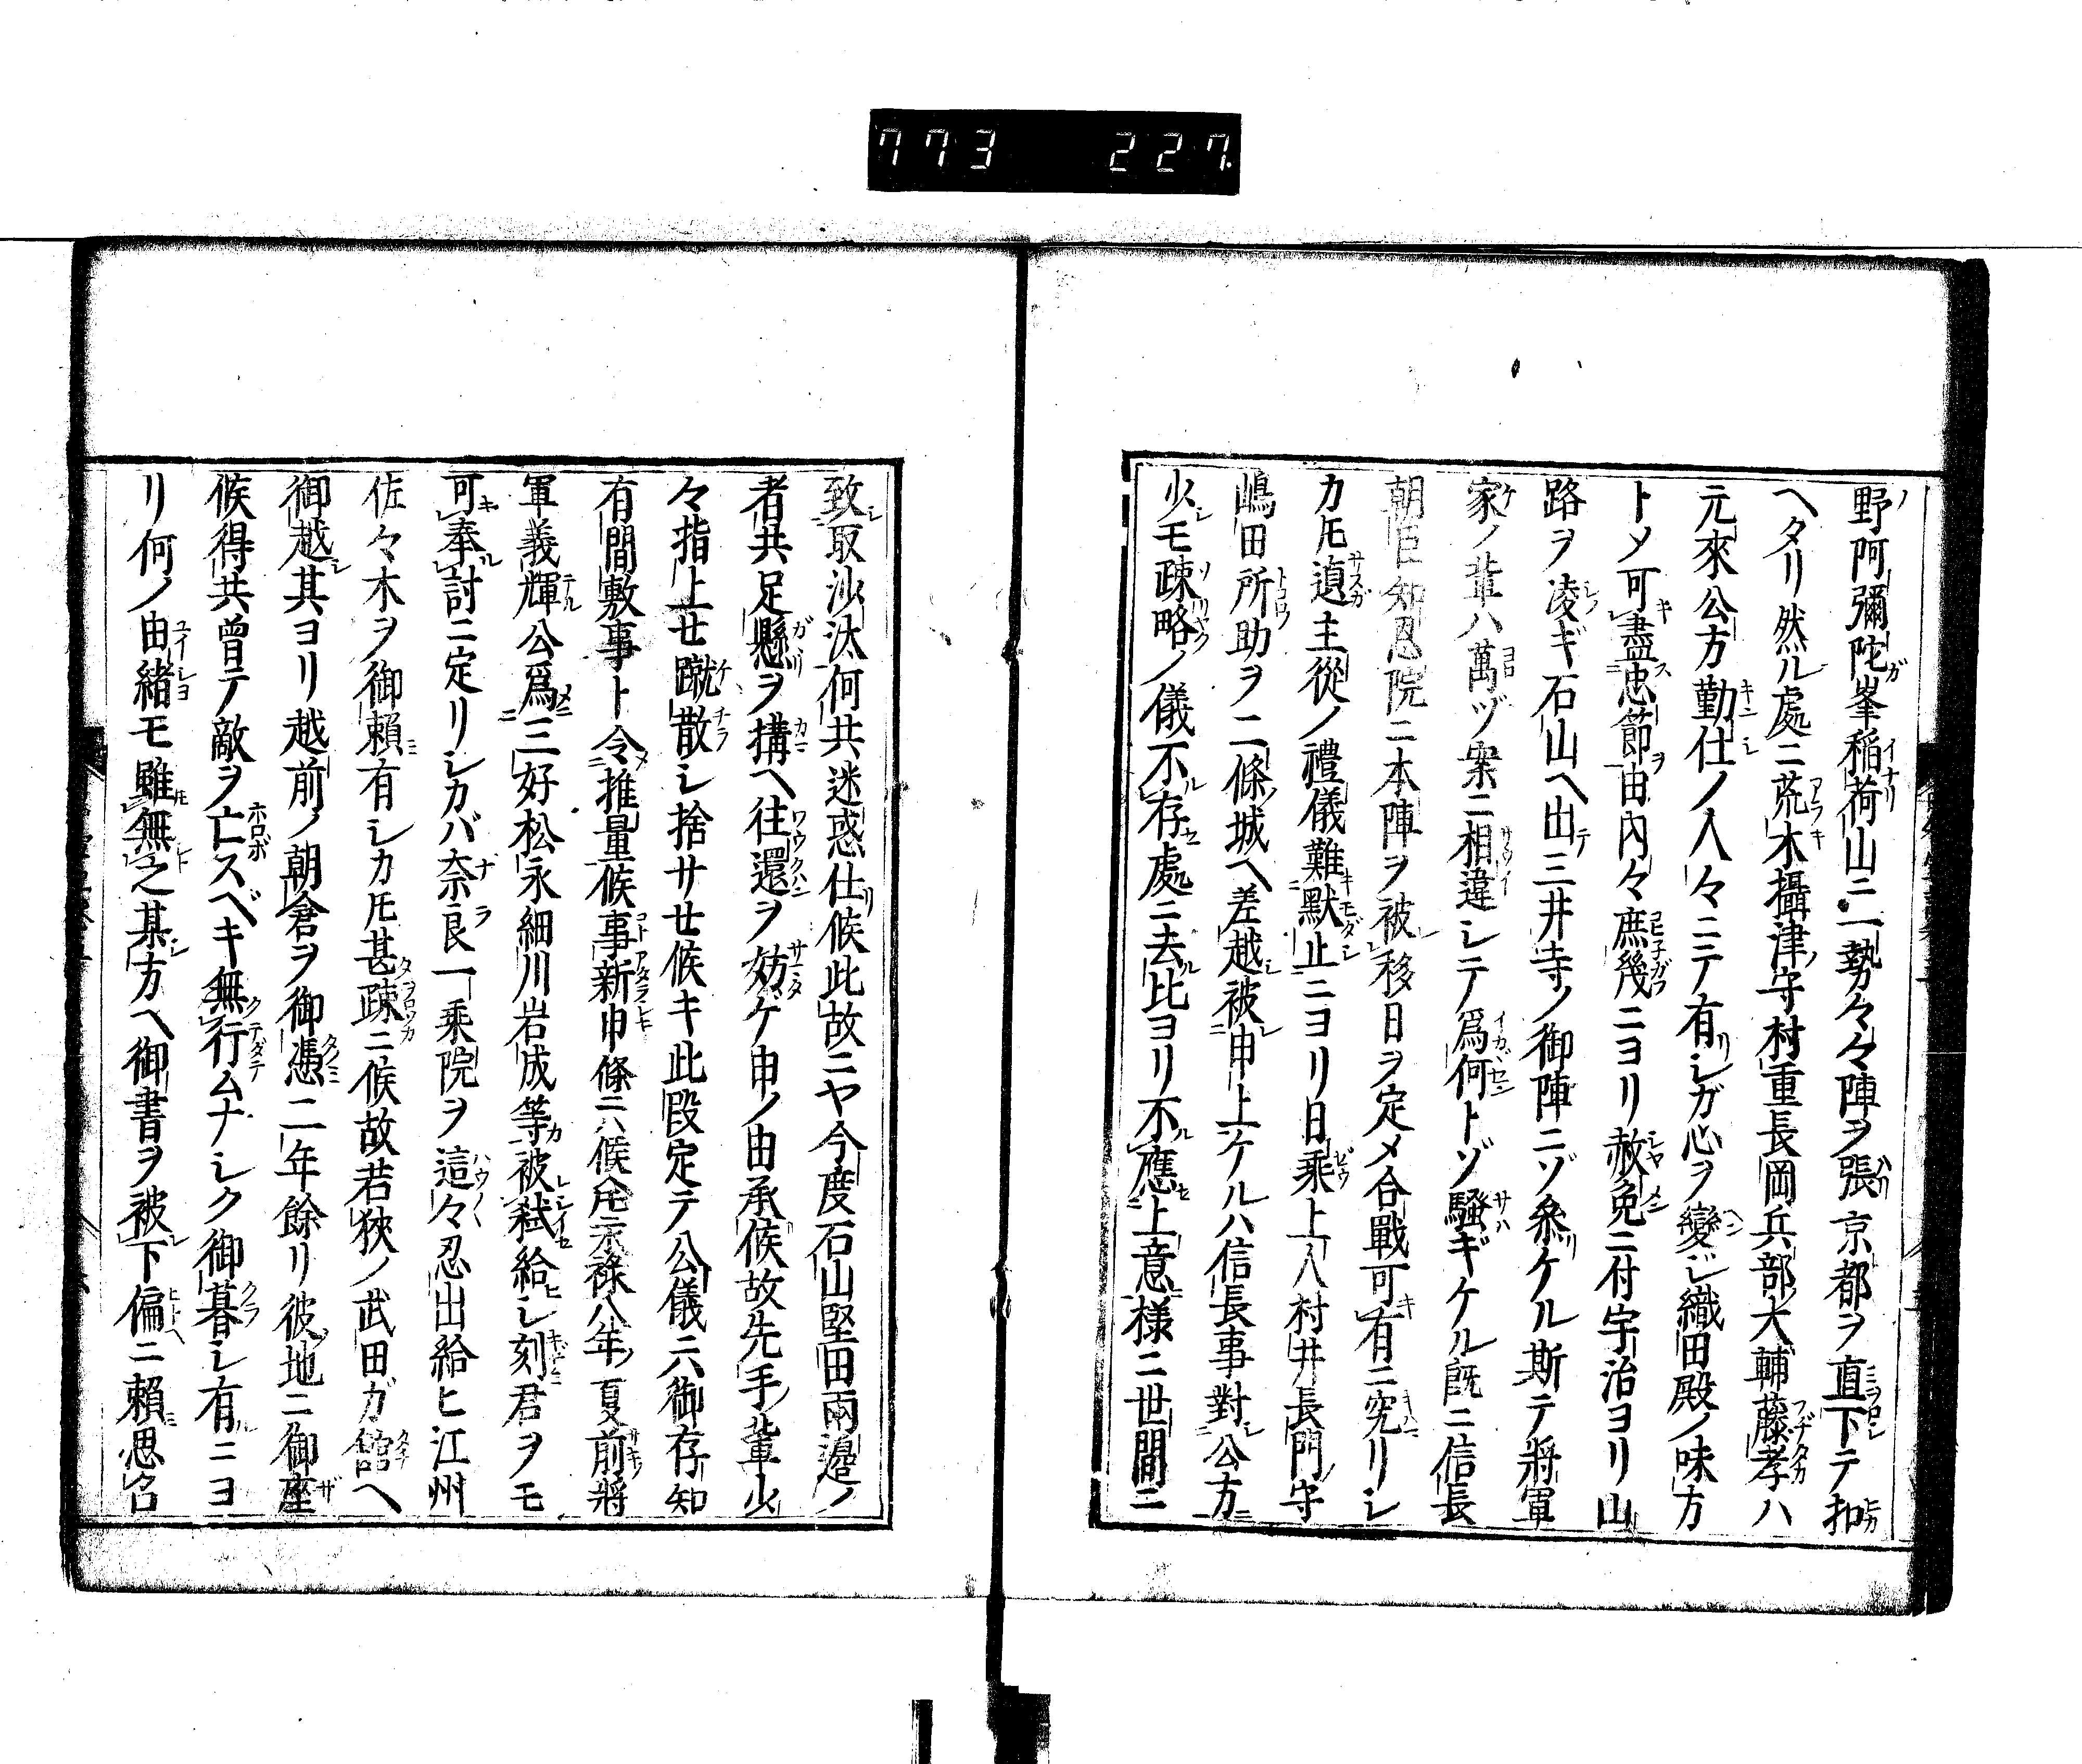 773 227
野阿彌陀峯稲荷山ニ一勢々々陣ヲ張京都ヲ直下テ扣
ヘタリ然ル處ニ荒木攝津守村重長岡兵部大輔藤孝ハ
元來公方勤仕ノ人々ニテ有シガ心ヲ變ジ織田殿ノ味方
トメ可盡忠節由内々庶幾ニヨリ赦免ニ付宇治ヨリ山
路ヲ凌ギ石山ヘ出三井寺ノ御陣ニゾ參ケル斯テ將軍
家ノ輩ハ萬ヅ案ニ相違シテ爲何トゾ騒ギケル既ニ信長
朝臣知恩院ニ本陣ヲ被移日ヲ定メ合戰可有ニ究リシ
カ𪜈遉主從ノ禮儀難默止ニヨリ日乘上人村井長門守
嶋田所助ヲ二條城ヘ差越被申上ケルハ信長事對公方
少モ疎略ノ儀不存處ニ去比ヨリ不應上意様ニ世間ニ
致取沙汰何共迷惑仕候此故ニヤ今度石山堅田兩邊ノ
者共足懸ヲ搆ヘ往還ヲ妨ケ申ノ由承候故先手輩少
々指上せ蹴散シ捨サせ候キ此段定テ公儀ニハ御存知
有間敷事ト令推量候事新申條ニハ候𪜈永禄八年夏前將
軍義輝公爲三好松永細川岩成等被弑給シ刻君ヲモ
可奉討ニ定リシカバ奈良一乘院ヲ這々忍出給ヒ江州
佐々木ヲ御頼有シカ𪜈甚疎ニ候故若狹ノ武田ガ舘ヘ
御越其ヨリ越前ノ朝倉ヲ御憑二年餘リ彼地ニ御座
候得共曾テ敵ヲ亡スベキ無行ムナシク御暮シ有ニヨ
リ何ノ由緒モ雖無之某方ヘ御書ヲ被下偏ニ頼思召